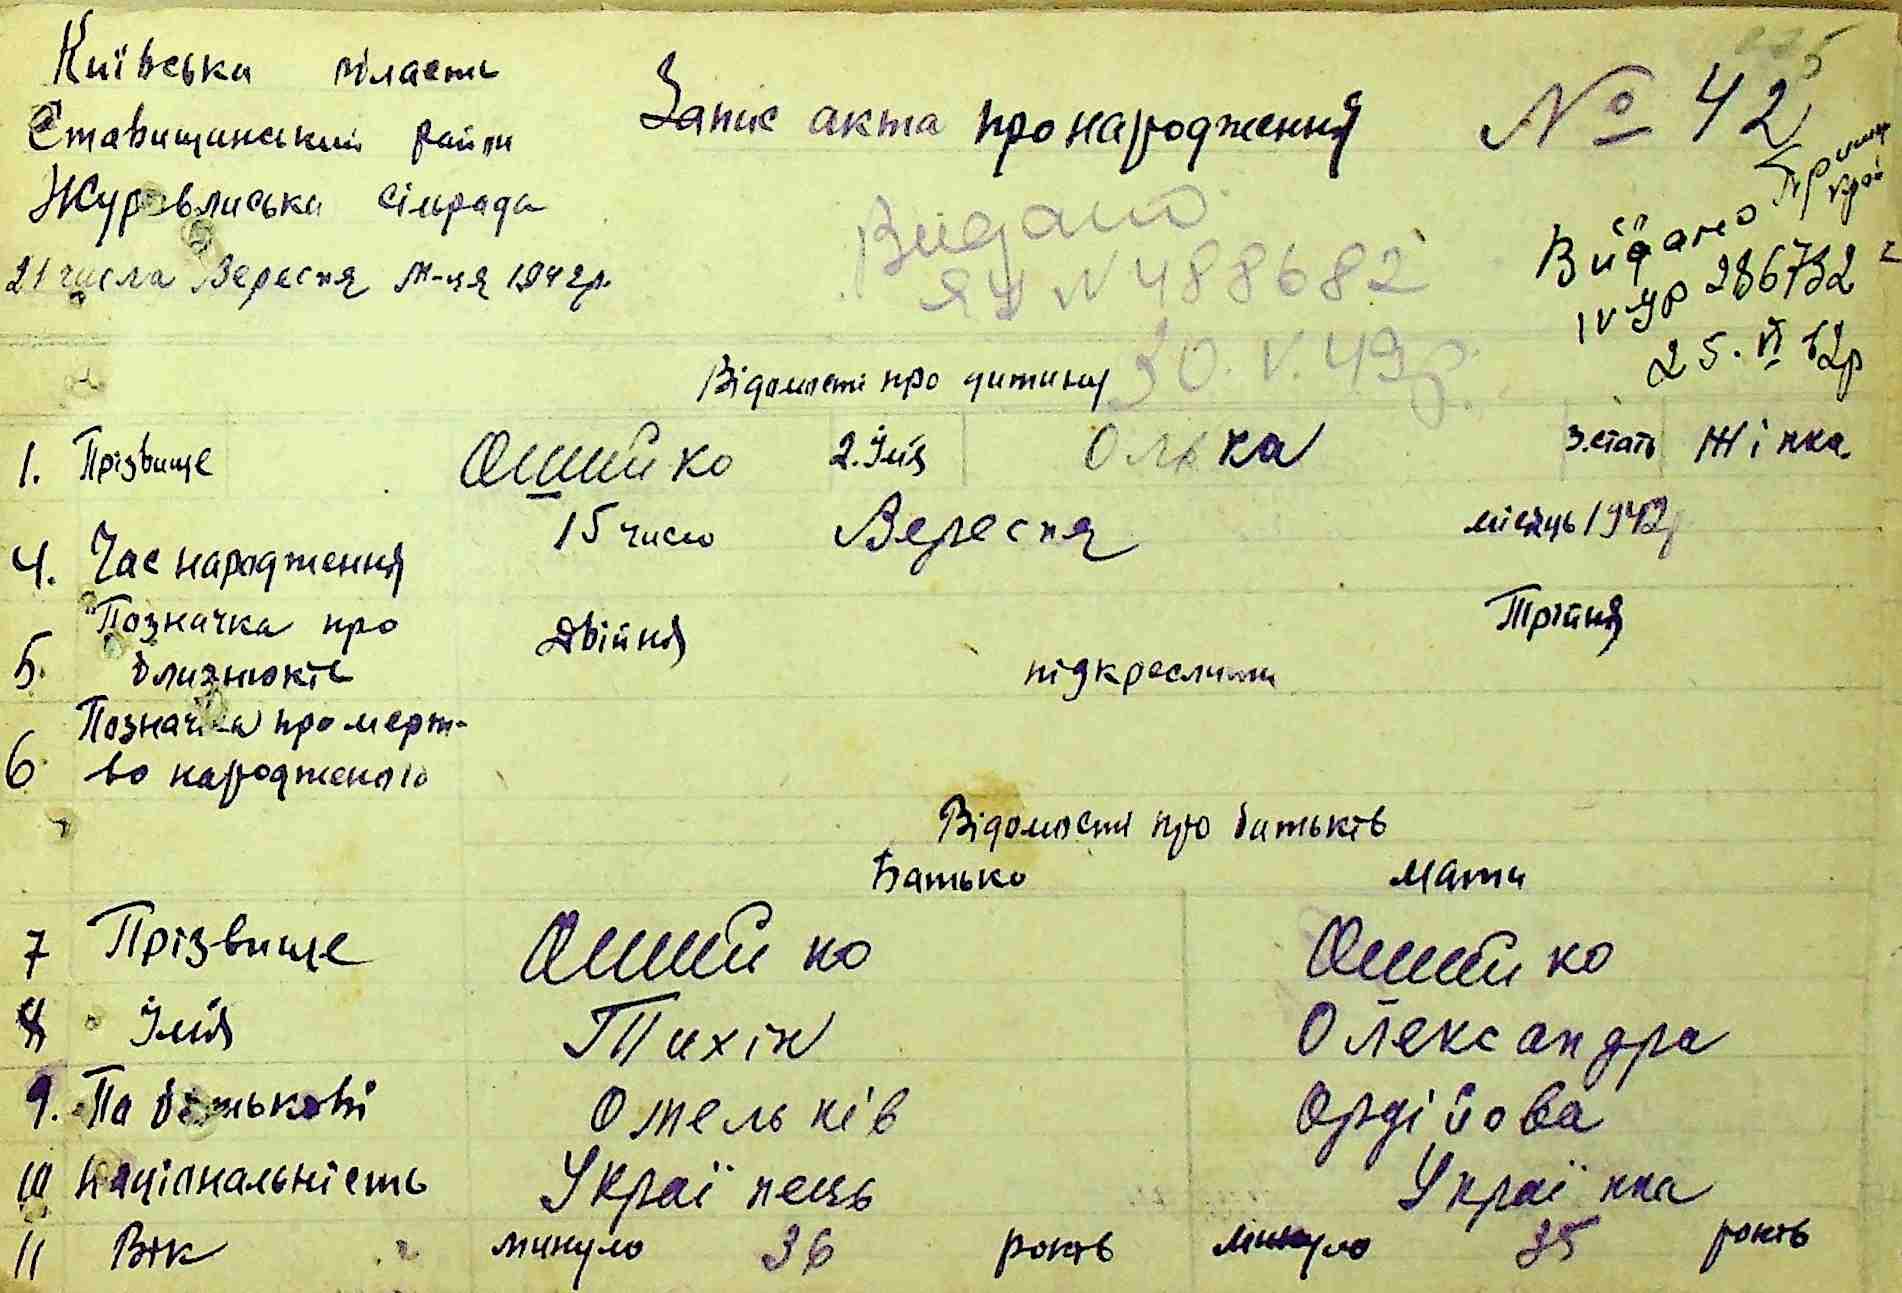 Київська область
Ставищанський район
Журавлиська сільрада
21 числа Вересня м-ця 1942р.
Запис акта про народження
№ 42
Видано
ЯЧ N 488682
30.V.49р.
Видано
IV УР 286732
25.VI 62р
Відомості про дитину
1. Прізвище Ошийко 2. Імя Олька 3. стать Жінка.
4. Час народження 15 число Вересня місяць 1942р
5. Позначка про близнюків двійня підкреслити Трійня
6 Позначка про мерт-
во народженого
Відомості про батьків
Батько Мати
7 Прізвище Ошийко Ошийко
8 Імя Тихін Олександра
9. По батькові Омельків Ордійова
10 Національність Українець Українка
11 Вік минуло 36 років минуло 35 років